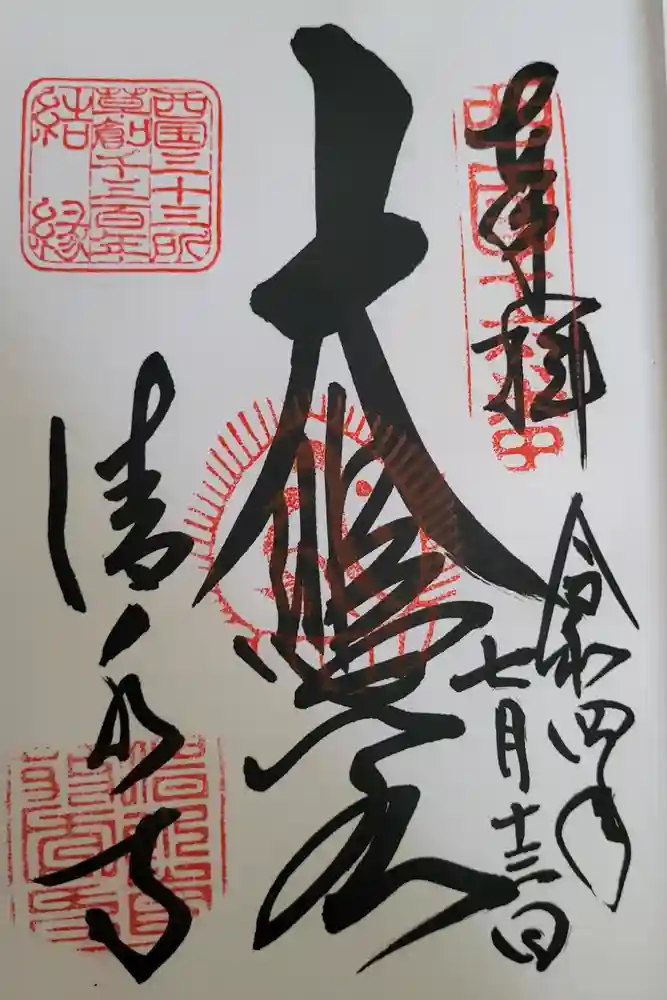 奉拝
令和四年
七月十三日
大悲閣
清水寺
西国三十三所
草創千三百年
結縁